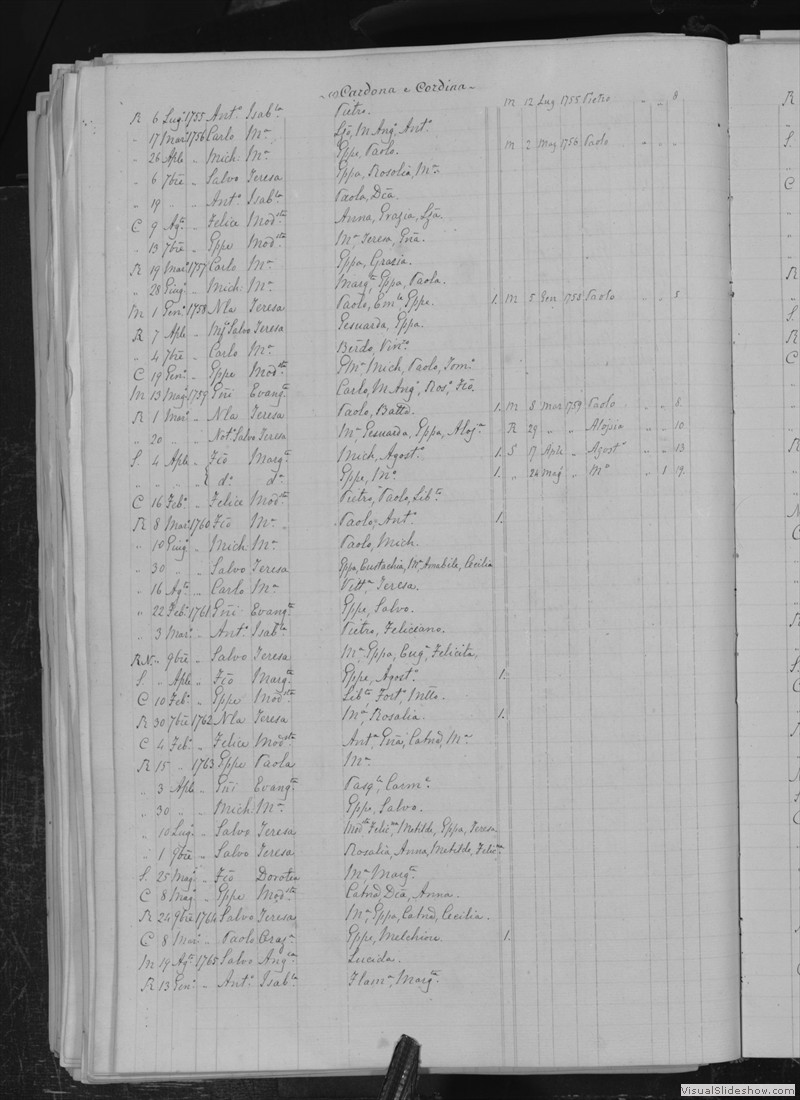 Cardona e Cordina
R 6 Lug.º 1755 Ant.º Isab.la Pietro. M 12 Lug 1755 Pietro " " 8
" 17 Mar. 1756 Carlo M.a M. Ang.ª Ant.ª
" 26 Aple " Mich. M.a Eppe, Paolo. M 2 Mag 1756 Paolo " " "
" 6 7bre " Salvo Teresa Eppa, Rosolia, M.a
" 19 " " Ant.º Isab.la Paola, Dea.
C 9 Ag.º " Felice Mod.sta Anna, Grazia,
" 13 7bre " Eppe Mod.sta M.a Teresa,
R 19 Mar. 1757 Carlo M.a Eppa, Grazia.
" 28 Giug. " Mich. M.a Marg.ta, Eppa, Paola.
M 1 Gen. 1758 Nla Teresa Paolo, Em.la, Eppe. 1. M 5 Gen. 1758 Paolo " " 5
R 7 Aple " Salvo Teresa Gesuarda, Eppa.
" 4 7bre " Carlo M.a Berdo, Vin.º
C 19 Gen. " Eppe Mod.sta Mich, Paolo, Tom.º
M 13 Mag. 1759 Gni Evang.ta Carlo, M. Ang.ª, Ros.ª,
R 1 Mar. " Nla Teresa Paolo, Batta. 1. M 8 Mar 1759 Paolo " " 8.
" 20 " " Not. Salvo Teresa M.a Gesuarda, Eppa, Aloj.a R 29 " " Alojsia " " 10
S. 4 Aple " Fco Marg.ta Mich, Agost.º 1. S 17 Aple " Agost.º " " 13
" " " " d.º d.a Eppe, M.a 1. " 24 Mag " M.a " 1 19.
C 16 Feb. " Felice Mod.sta Pietro, Paolo, Lib.ta
R 8 Mar. 1760 Fco M.a " Paolo, Ant.º 1.
" 10 Giug. " Mich. M.a Paolo, Mich.
" 30 " " Salvo Teresa Eppa, Eustachia, M.a Amabile, Cecilia
" 16 Ag.º " Carlo M.a Vitt.a Teresa.
" 22 Feb. 1761 Gni Evang.ta Eppe, Salvo.
" 3 Mar. " Ant.º Isab.la Pietro, Feliciano.
R N. " 9bre " Salvo Teresa M.a Eppa, Eug.a, Felicita.
S. " Aple " Fco Marg.ta Eppe, Agost.º 1.
C 10 Feb. " Eppe Mod.sta Lib.ta Fort.
R 30 7bre 1762 Nla Teresa M.a, Rosalia. 1.
C 4 Feb. " Felice Mod.sta Ant.a Catna, M.a
R 15 " 1763 Eppe Paola M.a
" 3 Aple " Gni Evang.ta Pasq.le, Carm.ª
" 30 " " Mich. M.a Eppe, Salvo.
" 10 Lug. " Salvo Teresa Mod.sta Felic.na, Matilde, Eppa, Teresa
" 1 9bre " Salvo Teresa Rosalia, Anna, Metilde, Felic.na
S. 25 Mag. " Fco Dorotea M.a Marg.ta
C 8 Mag. " Eppe Mod.sta Catna Dea, Anna.
R 24 9bre 1764 Salvo Teresa M.a Eppa, Catna, Cecilia.
C 8 Mar. " Paolo Graz.a Eppe, Melchiore 1.
M 19 Ag.º 1765 Salvo Ang.ca Lucida.
R 13 Gen. " Ant.º Isab.la Flam.a, Marg.ta
VisualSlideshow.com